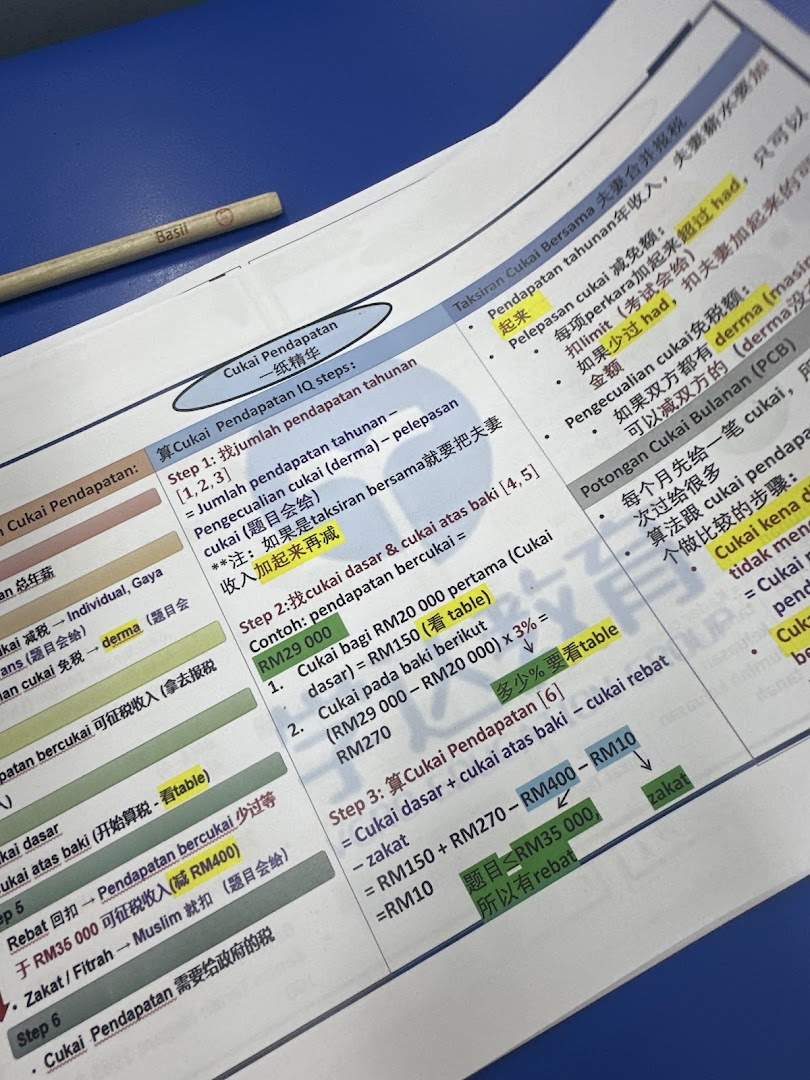 Basil
Cukai Pendapatan
一纸精华
Cukai Pendapatan:
总年薪
减税 → Individual, Gaya
(题目会给)
cukai 免税 → derma (题目会
bercukai 可征税收入 (拿去报税
dasar
cukai atas baki (开始算税 - 看table)
Rebat 回扣 → Pendapatan bercukai 少过等
于 RM35 000 可征税收入(减 RM400)
• Zakat / Fitrah → Muslim 就扣 (题目会给)
Step 6
• Cukai Pendapatan 需要给政府的税
算Cukai Pendapatan IQ steps:
Step 1: 找jumlah pendapatan tahunan
[1, 2, 3]
= Jumlah pendapatan tahunan –
Pengecualian cukai (derma) – pelepasan
cukai (题目会给)
**注: 如果是taksiran bersama就要把夫妻
收入加起来再减
Step 2:找cukai dasar & cukai atas baki [4, 5]
Contoh: pendapatan bercukai =
RM29 000
1. Cukai bagi RM20 000 pertama (Cukai
dasar) = RM150 (看 table)
2. Cukai pada baki berikut
(RM29 000 – RM20 000) x 3% =
RM270
多少% 要看table
Step 3: 算Cukai Pendapatan [6]
= Cukai dasar + cukai atas baki – cukai rebat
– zakat
= RM150 + RM270 – RM400 – RM10
=RM10
zakat
题目≤RM35 000,
所以有rebat
Taksiran Cukai Bersama 夫妻合并报税
• Pendapatan tahunan年收入, 夫妻薪水要加
起来
• Pelepasan cukai 减免额:
• 每项perkara加起来超过 had, 只可以
扣limit (考试会给)
• 如果少过 had, 扣夫妻加起来的
金额
• Pengecualian cukai免税额:
• 如果双方都有 derma
可以减双方的 (derma
Potongan Cukai Bulanan (PCB)
• 每个月先给一笔 cukai,
次过给很多
• 算法跟 cukai
个做比较的步骤:
• Cukai kena
tidak
= Cukai
学达教育